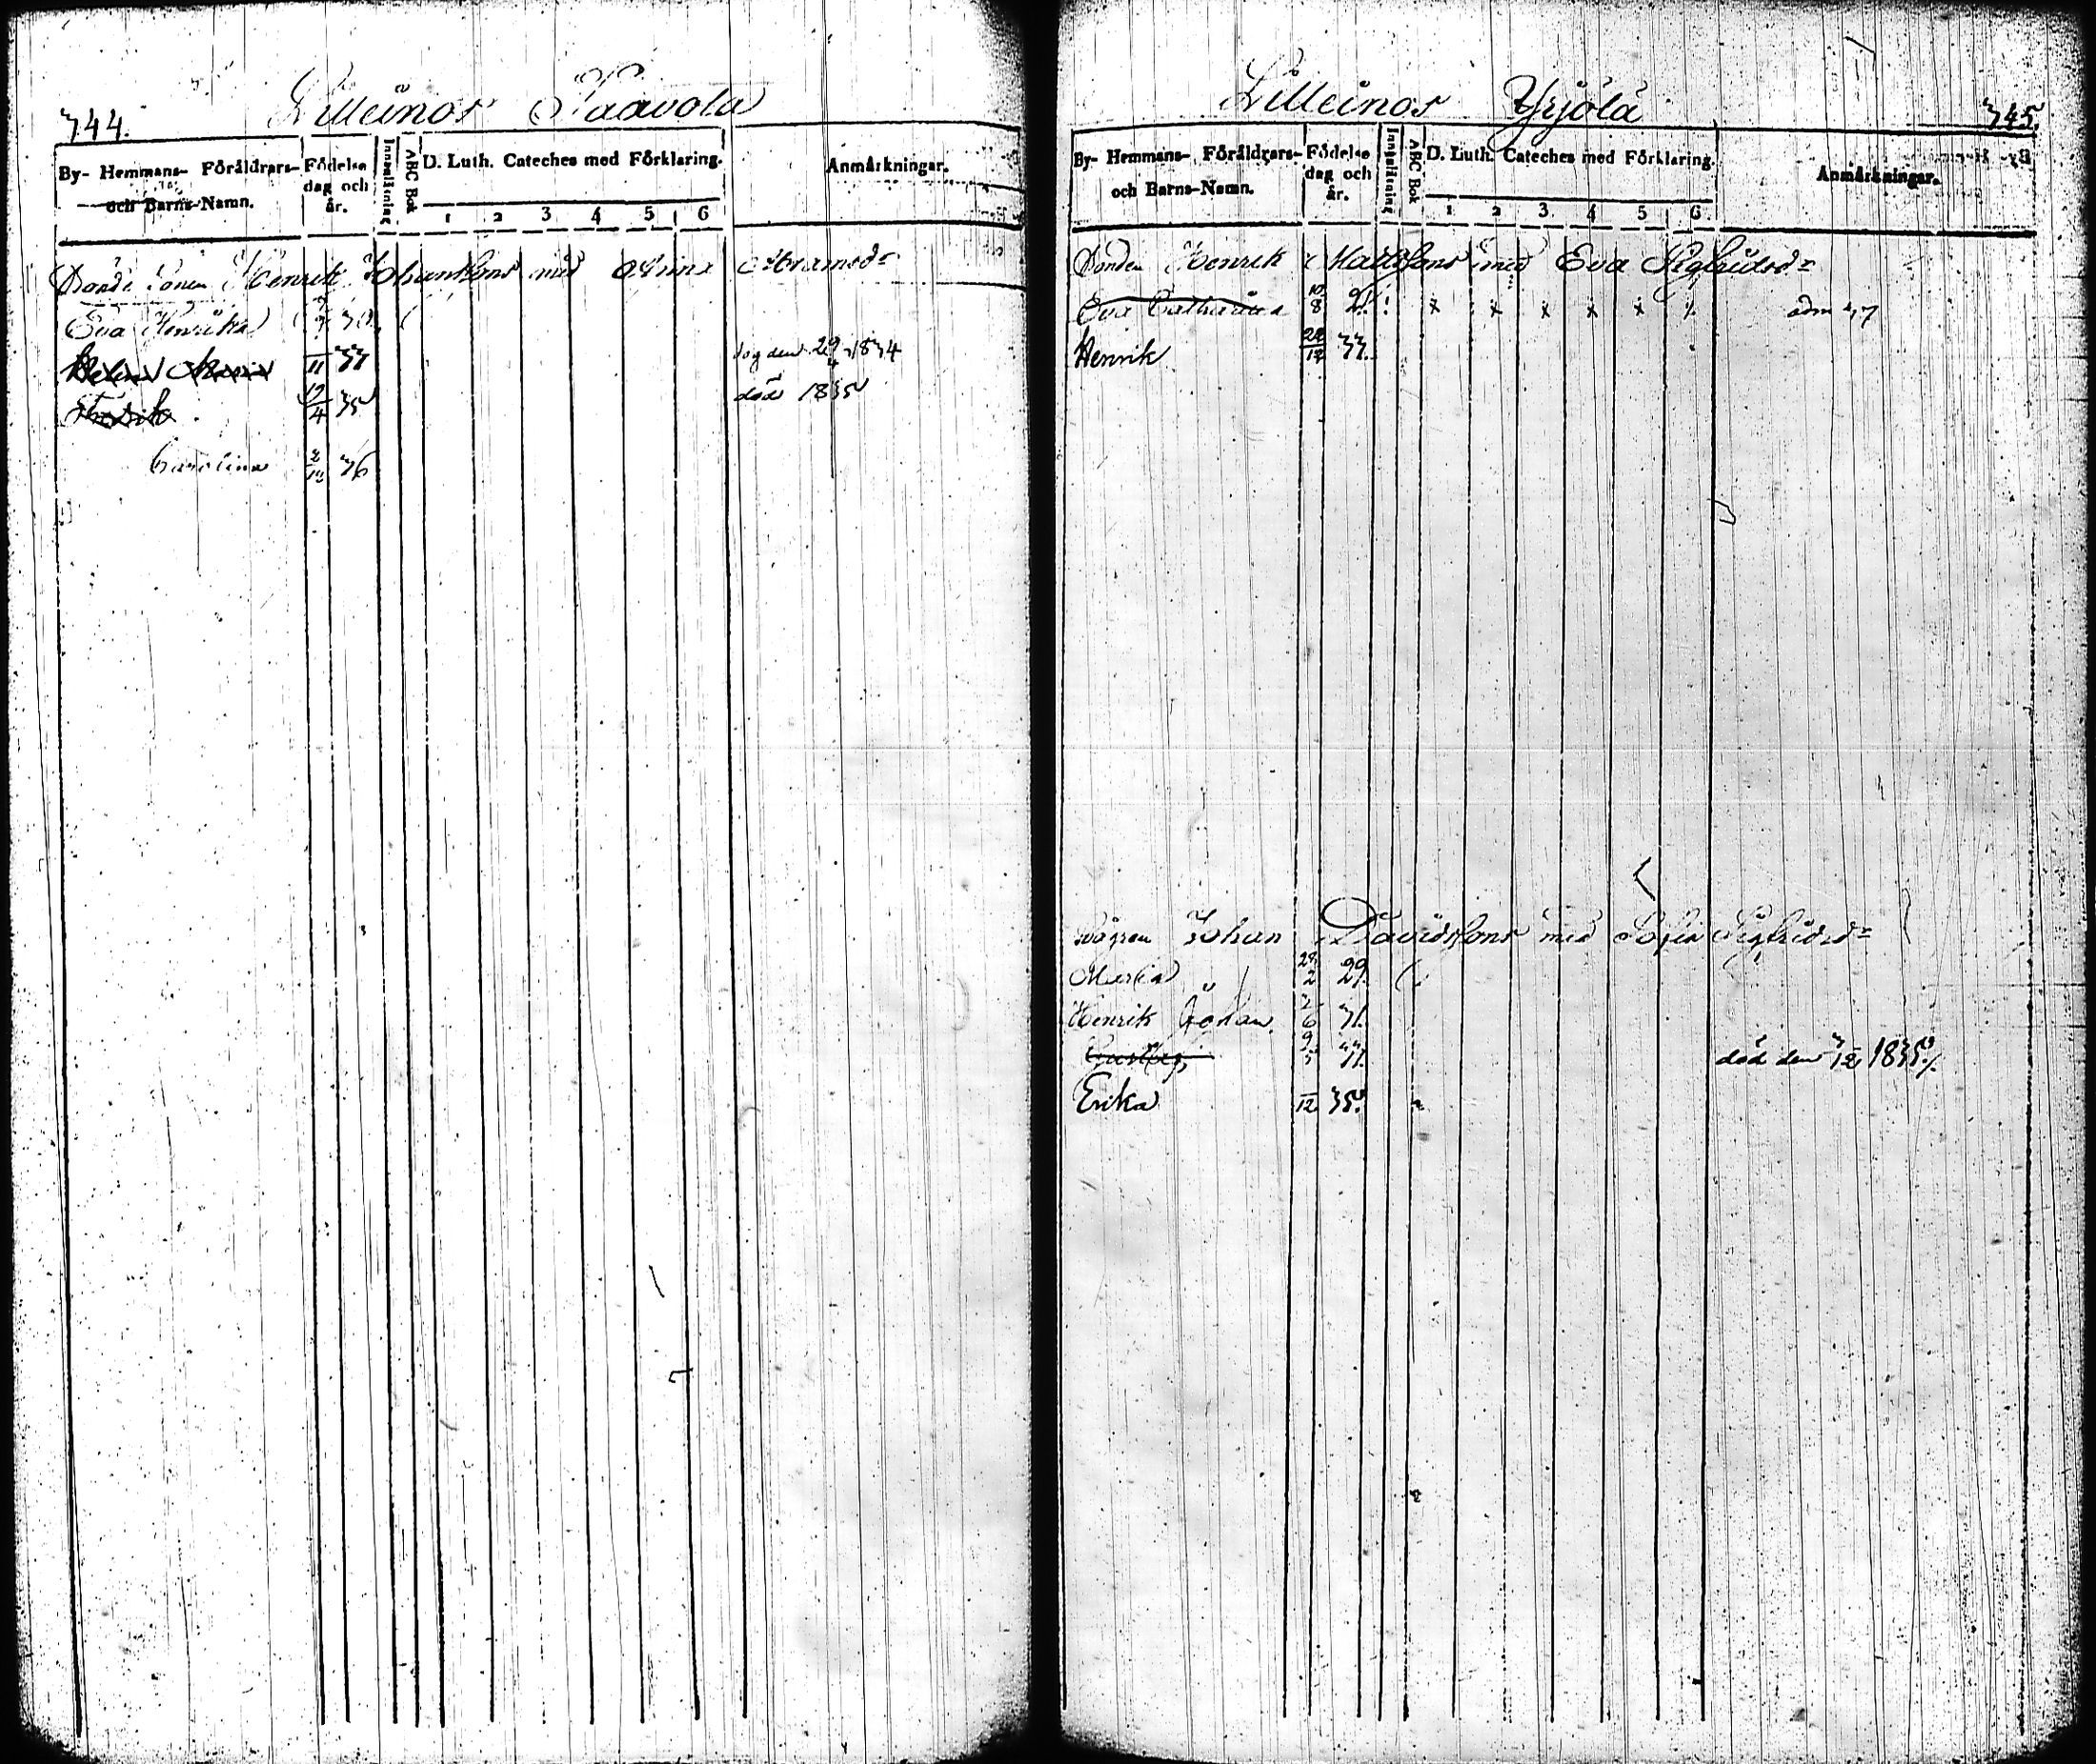 744.
Lilleinos Paavola
By- Hemmans- Föräldrars- och Barna-Namn.
Födelse dag och år.
Innanläsning
ABC Bok
D. Luth. Cateches med Förklaring.
1 2 3 4 5 6
Anmärkningar.
Bonde Sonen Henrik Johanssons med Anna Abramsd:r
Eva Henrika 30
11 33 dog den 29/4 1834
Fredrik 19/4 35 död 1835
Carolina 2/12 36
Lilleinos Yrjölä
345.
By- Hemmans- Föräldrars- och Barna-Namn.
Födelse dag och år.
Innanläsning
ABC Bok
D. Luth. Cateches med Förklaring.
1 2 3 4 5 6
Anmärkningar.
Bonden Henrik Mattssons med Eva Sigfridsd:r
Eva Catharina 10/8 21. x x x x x adm 37
Henrik 22/12 33.
Svågren Johan Davidssons med Sofia Sigfridsd:r
Maria 28/2 29.
Henrik Johan 6 31.
Gustaf 9/5 33. död den 3/12 1835
Erika 12 35.